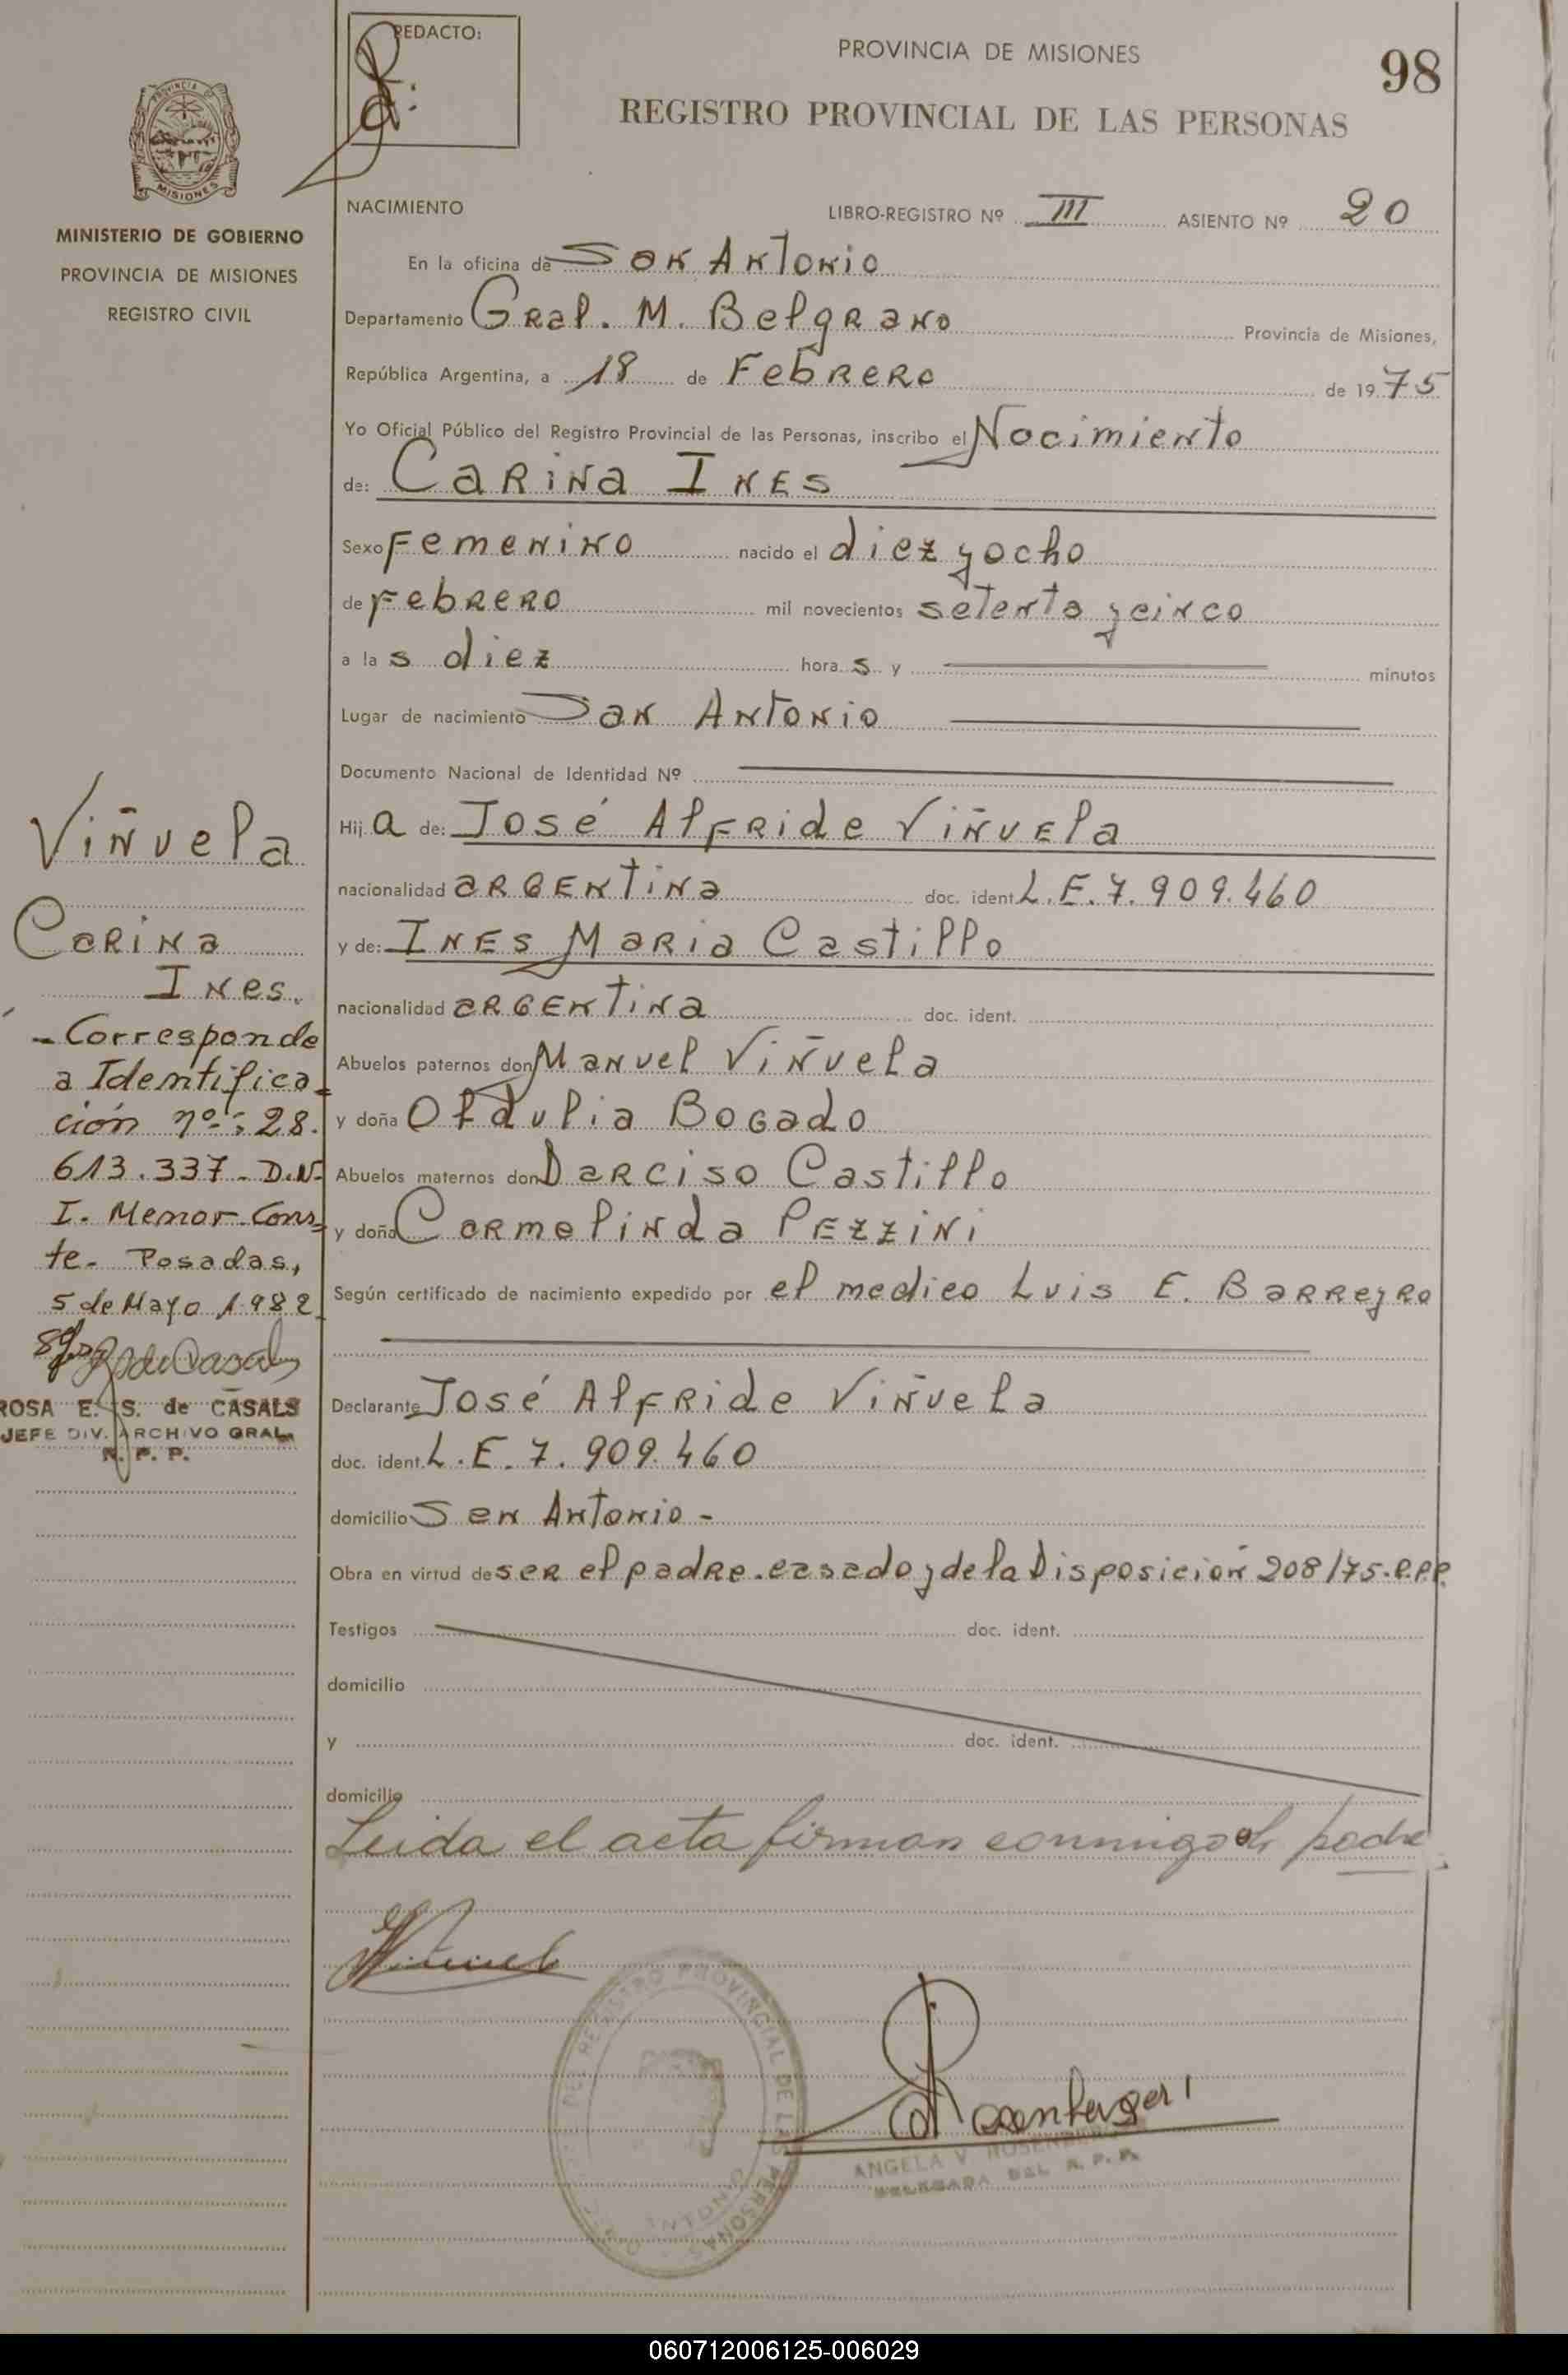 REDACTO:
PROVINCIA DE MISIONES
98
REGISTRO PROVINCIAL DE LAS PERSONAS
PROVINCIA DE
MISIONES
MINISTERIO DE GOBIERNO
PROVINCIA DE MISIONES
REGISTRO CIVIL
NACIMIENTO
LIBRO-REGISTRO Nº III ASIENTO Nº 20
En la oficina de San Antonio
Departamento Gral. M. Belgrano Provincia de Misiones,
República Argentina, a 18 de Febrero de 1975
Yo Oficial Público del Registro Provincial de las Personas, inscribo el Nacimiento
de: Carina Ines
Sexo Femenino nacido el diez y ocho
de Febrero mil novecientos setenta y cinco
a las diez horas y minutos
Lugar de nacimiento San Antonio
Documento Nacional de Identidad Nº
Hija de: José Alfride Viñuela
nacionalidad argentina doc. ident. L.E. 7.909.460
y de: Ines Maria Castillo
nacionalidad argentina doc. ident.
Abuelos paternos don Manuel Viñuela
y doña Oldulia Bogado
Abuelos maternos don Darciso Castillo
y doña Carmelinda Pezzini
Según certificado de nacimiento expedido por el medico Luis E. Barreyro
Declarante José Alfride Viñuela
doc. ident. L.E. 7.909.460
domicilio San Antonio -
Obra en virtud de ser el padre.casado y de la Disposición 208/75-R.P.P.
Testigos doc. ident.
domicilio
y doc. ident.
domicilio
Leida el acta firman conmigo el padre.
Viñuela
Carina
Ines.
- Corresponde
a Identifica-
ción nº: 28.
613.337 - D.N.
I. Menor Cons-
te. Posadas,
5 de Mayo 1.982
ROSA E. S. de CASALS
JEFE DIV. ARCHIVO GRAL.
R. P. P.
DEL REGISTRO PROVINCIAL DE LAS PERSONAS
ANTONIO
Rosenberger
ANGELA V. ROSENBERGER
DELEGADA DEL R. P. P.
060712006125-006029